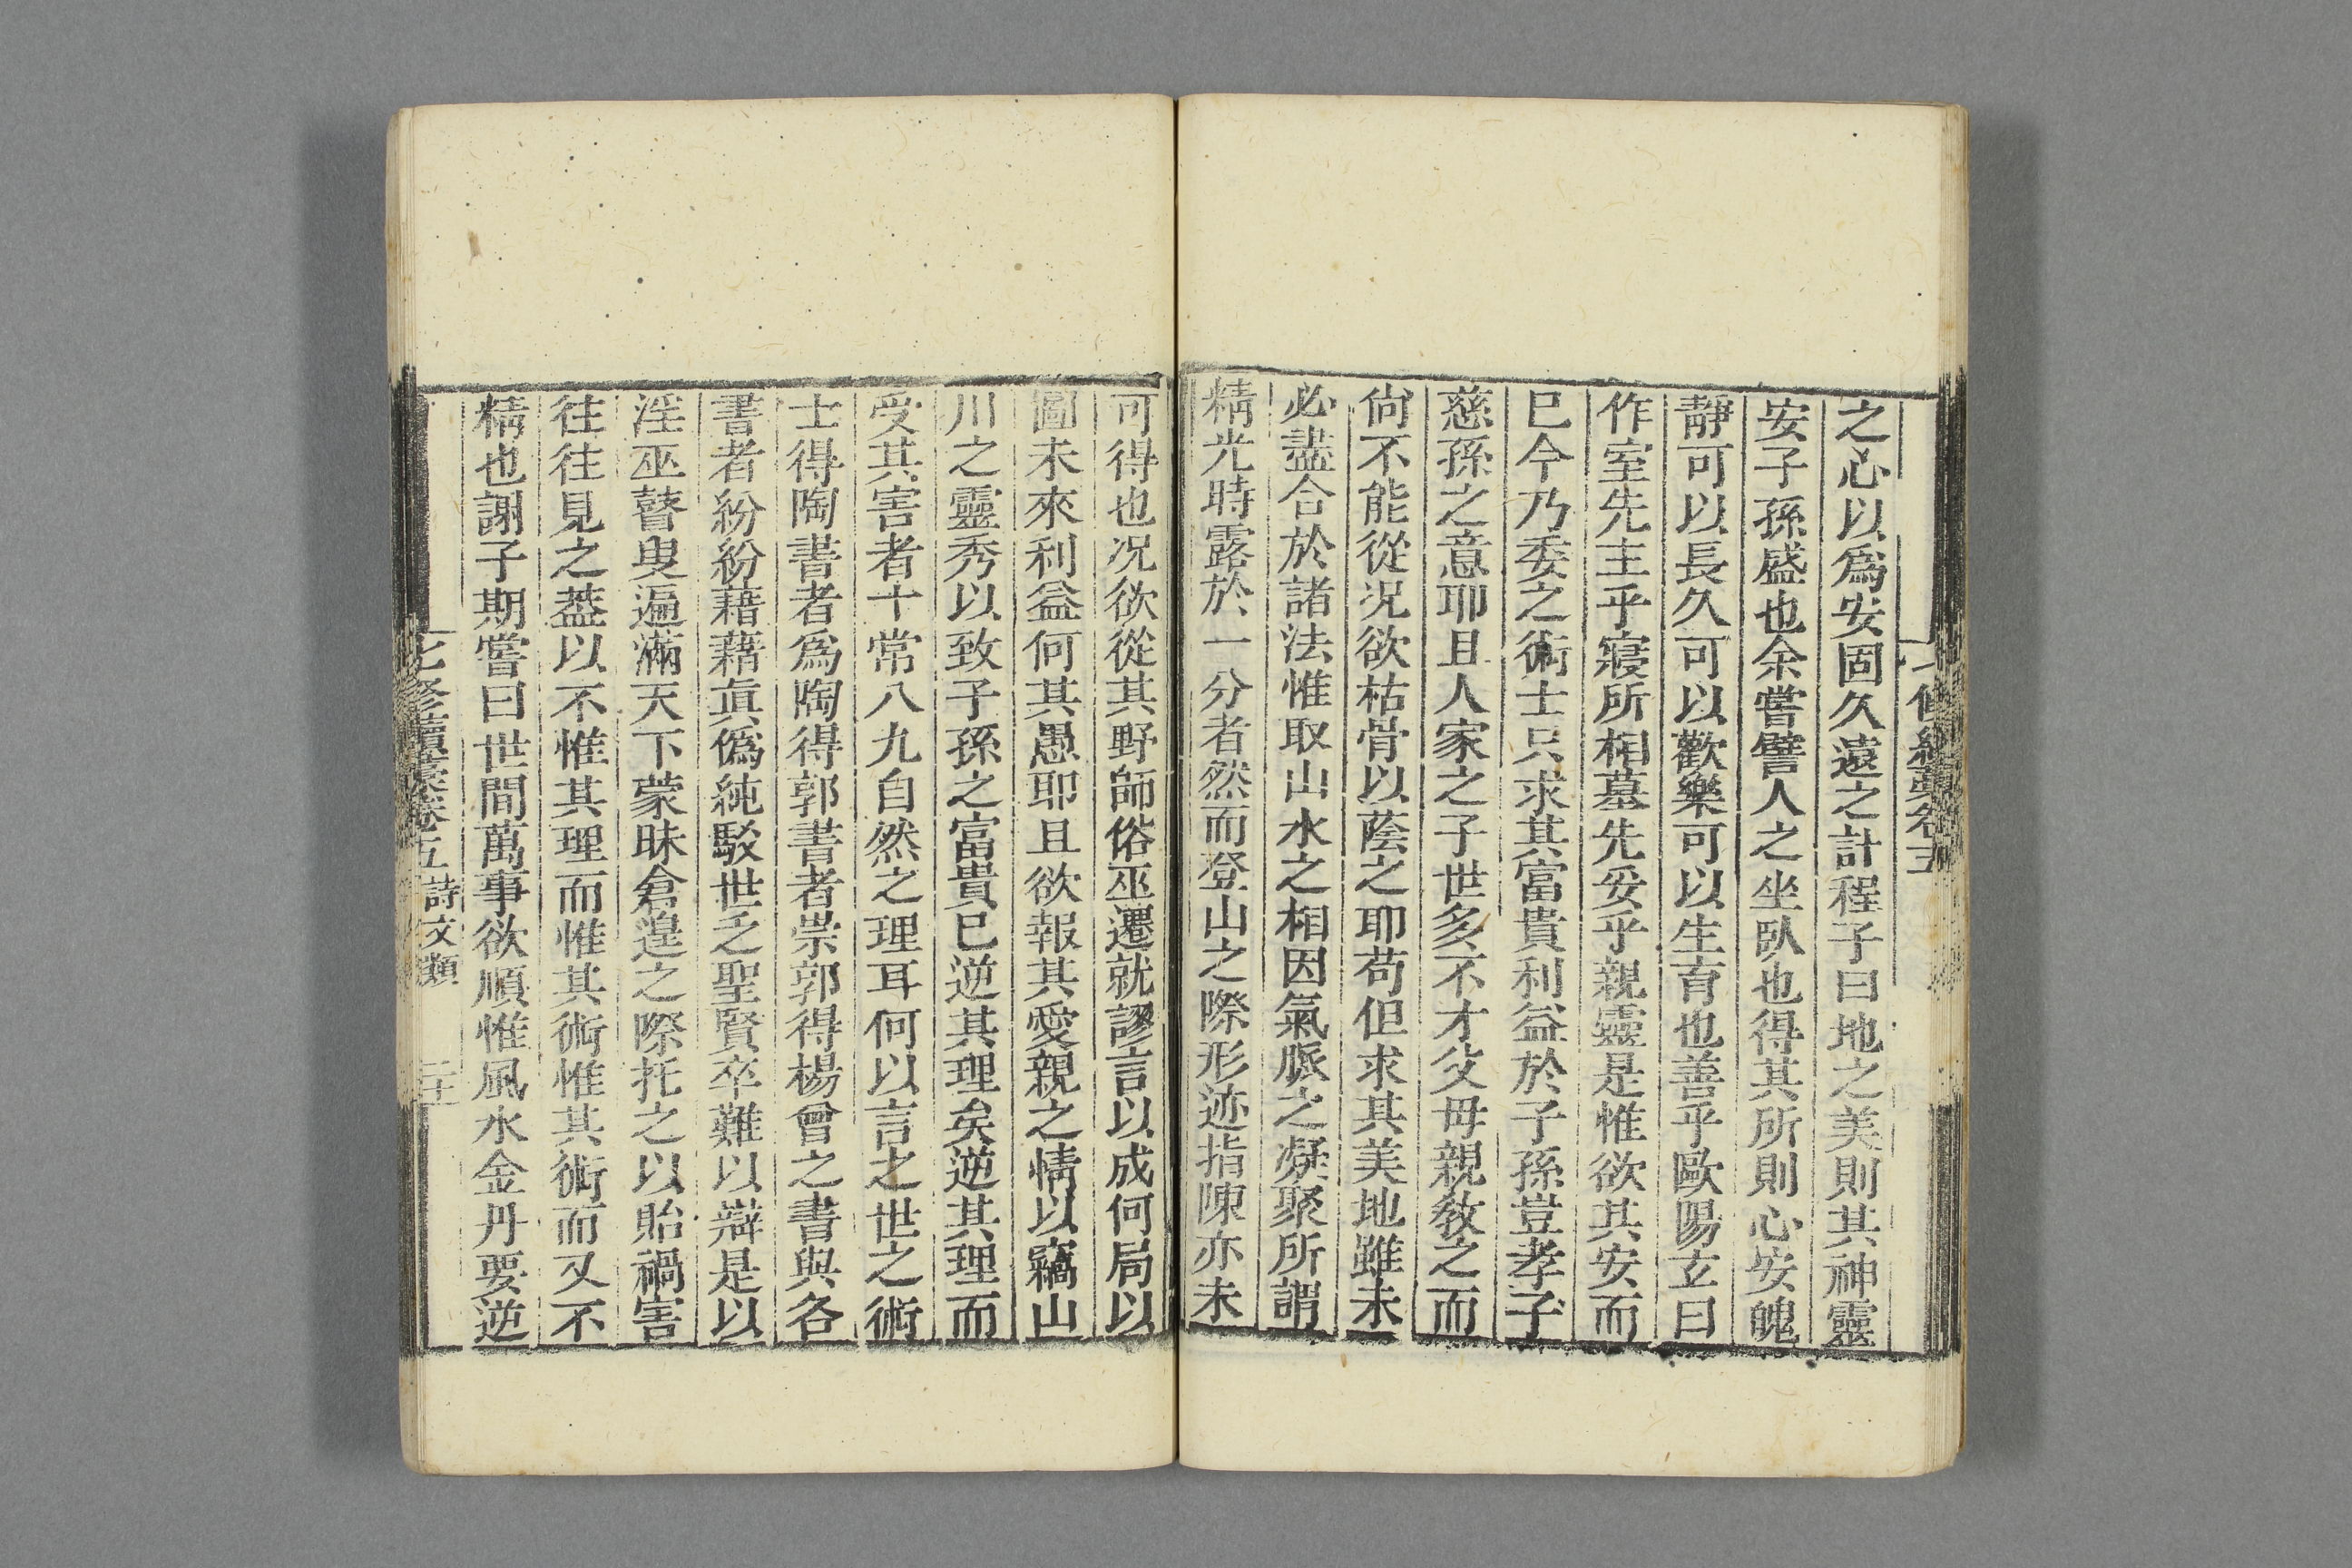 之心以爲安固久遠之計程子曰地之美則其神靈
安子孫盛也余嘗譬人之坐臥也得其所則心安魄
靜可以長久可以歡樂可以生育也善乎歐陽玄曰
作室先主乎寢所相墓先妥乎親靈是惟欲其安而
已今乃委之術士只求其富貴利益於子孫豈孝子
慈孫之意耶且人家之子世多不才父母親敎之而
尙不能從况欲枯骨以蔭之耶苟但求其美地雖未
必盡合於諸法惟取山水之相因氣脈之凝聚所謂
精光時露於一分者然而登山之際形迹指陳亦未
可得也况欲從其野師俗巫遷就謬言以成何局以
圖未來利益何其愚耶且欲報其愛親之情以竊山
川之靈秀以致子孫之富貴已逆其理矣逆其理而
受其害者十常八九自然之理耳何以言之世之術
士得陶書者爲陶得郭書者崇郭得楊曾之書與各
書者紛紛藉藉眞僞純駁世乏聖賢卒難以辯是以
淫巫瞽叟遍滿天下蒙昧倉遑之際托之以貽禍害
往往見之蓋以不惟其理而惟其術惟其術而又不
精也謝子期嘗曰世間萬事欲順惟風水金丹要逆
七修續稾卷五 詩文類 二十